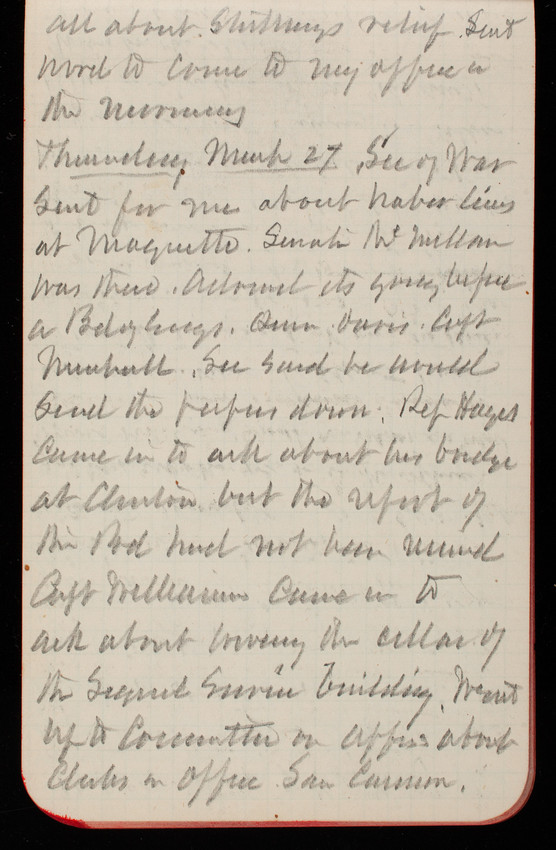 all about Stickneys relief. Sent
word to come to my office in
the morning
Thursday, March 27, Sec of War
sent for me about harbor lines
at Marquette. Senator McMillan
was there. Advised its going before
a Bd of Engs. Sen. Davis. Capt
Marshall. Sec said he would
send the papers down. Rep Hayes
came in to ask about his bridge
at Clinton but the report of
the Bd had not been received
Capt Williams came in to
ask about moving the cellar of
the Signal Service building. Went
up to Committee on Appns about
Clerks in office. Saw Cannon.